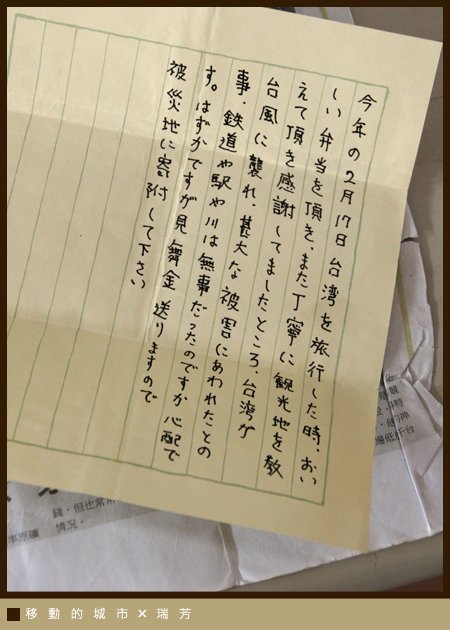 今年の2月17日台湾を旅行した時、おい
しい弁当を頂き、また丁寧に観光地を教
えて頂き感謝してましたところ、台湾が
台風に襲れ、甚大な被害にあわれたとの
事、鉄道や駅や川は無事だったのですか心配で
す。はずかですが見舞金送りますので
被災地に寄附して下さい
錢,但也常常
情況。
移動的城市×瑞芳